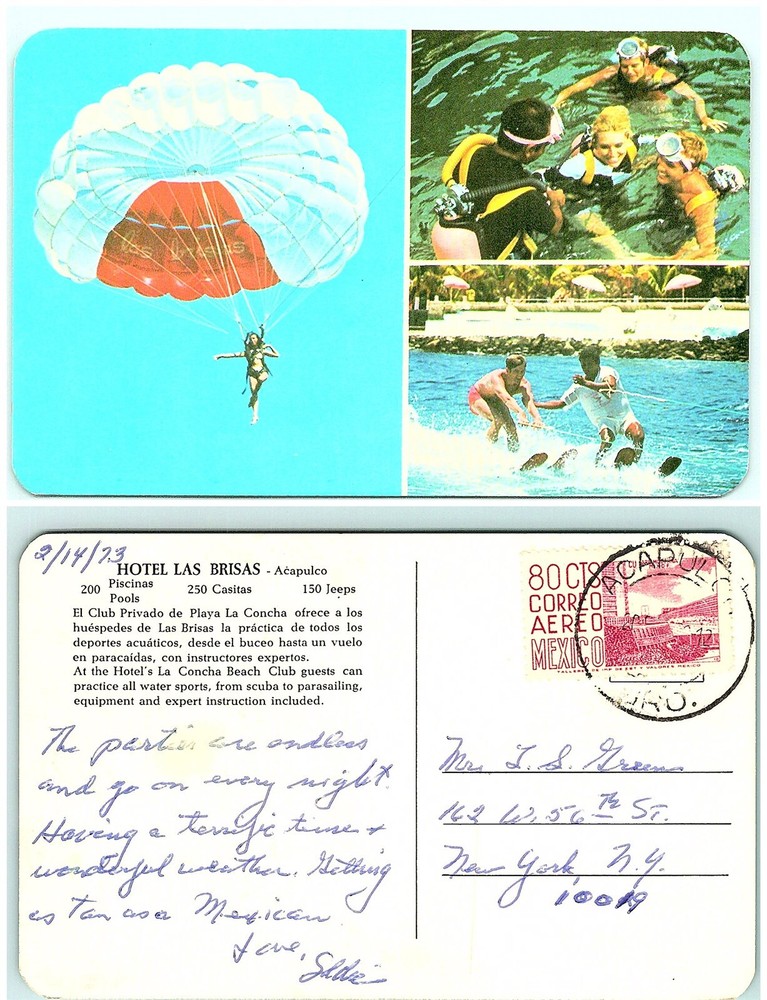 las brisas
2/14/73
HOTEL LAS BRISAS - Acapulco
200 Piscinas Pools 250 Casitas 150 Jeeps
El Club Privado de Playa La Concha ofrece a los
huéspedes de Las Brisas la práctica de todos los
deportes acuáticos, desde el buceo hasta un vuelo
en paracaídas, con instructores expertos.
At the Hotel's La Concha Beach Club guests can
practice all water sports, from scuba to parasailing,
equipment and expert instruction included.
The parties are endless
and go on every night.
Having a terrific time +
wonderful weather. Getting
as tan as a Mexican
Love,
80 CTS
CORREO
AEREO
MEXICO
ACAPULCO
GRO.
12
162 W. 56TH St.
New York, N.Y.
10019